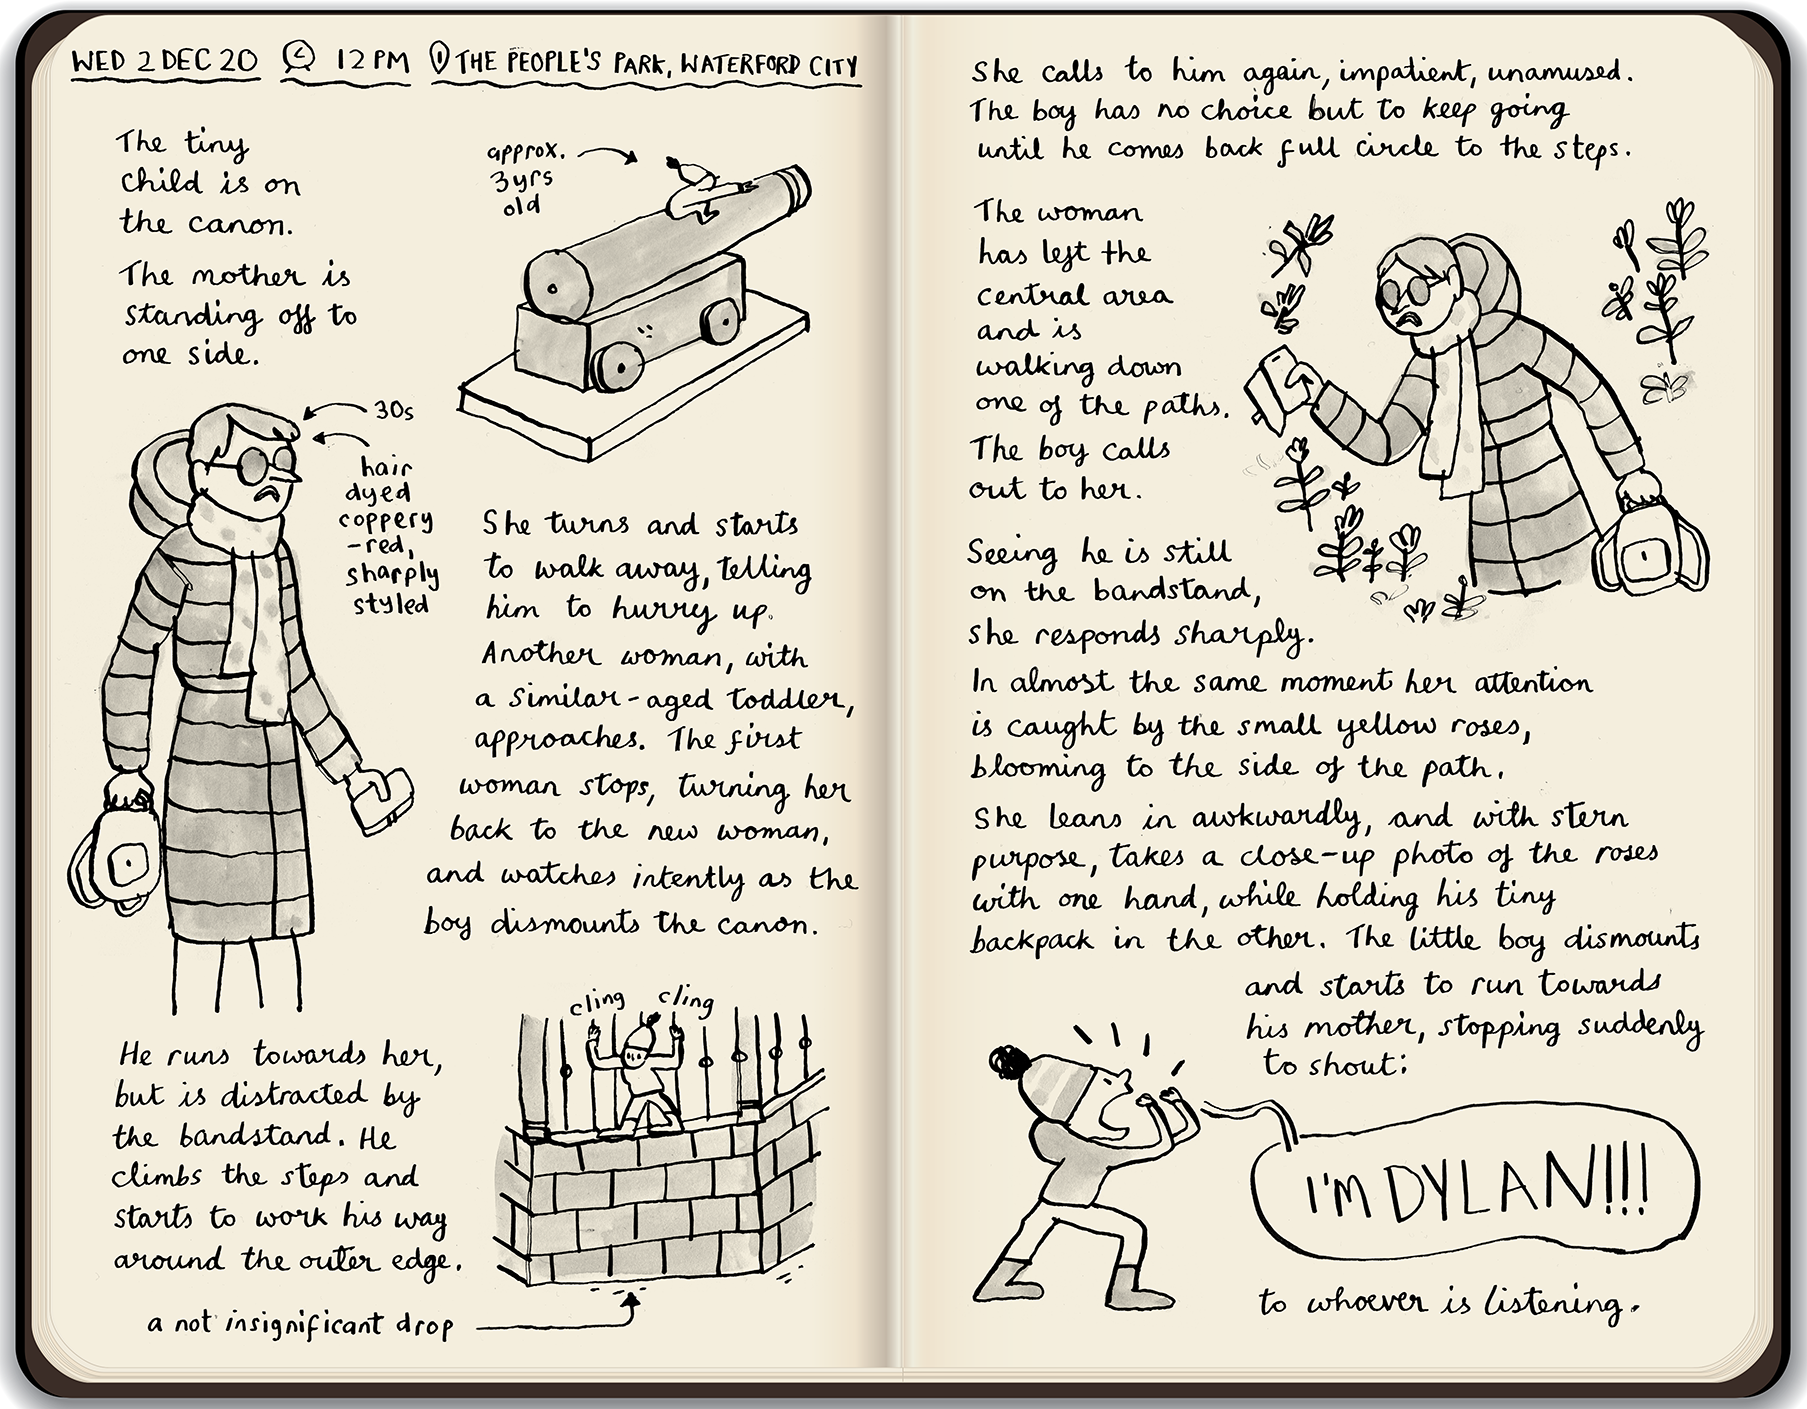 WED 2 DEC 20 12 PM THE PEOPLE'S PARK, WATERFORD CITY
The tiny
child is on
the canon.
The mother is
standing off to
one side.
approx.
3yrs
old
30s
hair
dyed
coppery
-red,
sharply
styled
She turns and starts
to walk away, telling
him to hurry up.
Another woman, with
a similar-aged toddler,
approaches. The first
woman stops, turning her
back to the new woman,
and watches intently as the
boy dismounts the canon.
He runs towards her,
but is distracted by
the bandstand. He
climbs the steps and
starts to work his way
around the outer edge.
cling cling
a not insignificant drop
She calls to him again, impatient, unamused.
The boy has no choice but to keep going
until he comes back full circle to the steps.
The woman
has left the
central area
and is
walking down
one of the paths.
The boy calls
out to her.
Seeing he is still
on the bandstand,
she responds sharply.
In almost the same moment her attention
is caught by the small yellow roses,
blooming to the side of the path.
She leans in awkwardly, and with stern
purpose, takes a close-up photo of the roses
with one hand, while holding his tiny
backpack in the other. The little boy dismounts
and starts to run towards
his mother, stopping suddenly
to shout:
I'M DYLAN!!!
to whoever is listening.